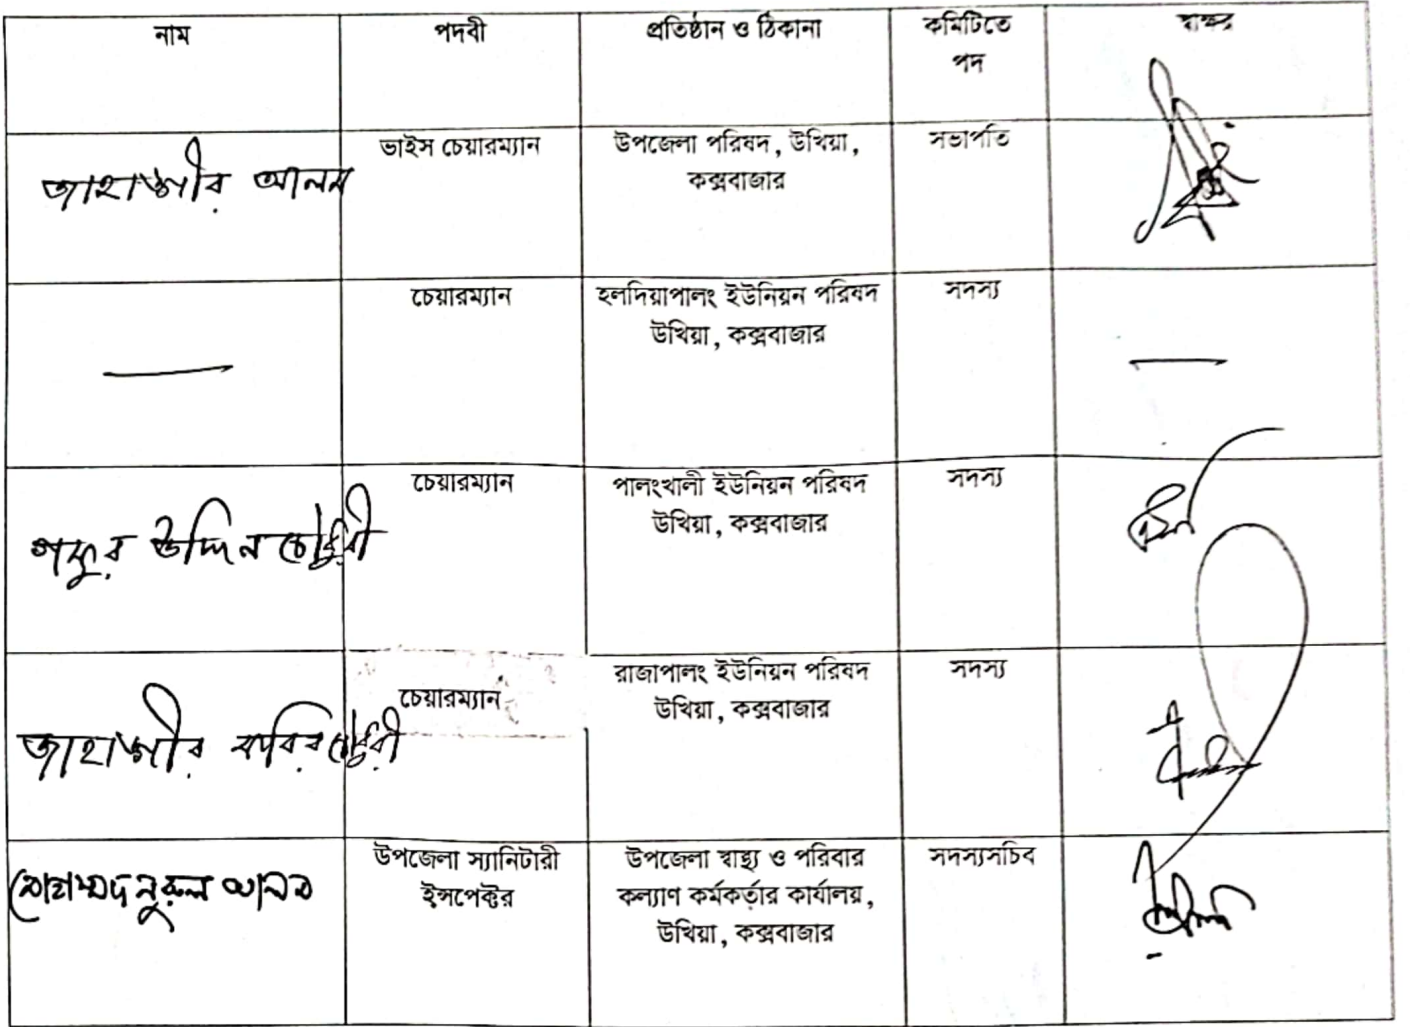 নাম
পদবী
প্রতিষ্ঠান ও ঠিকানা
কমিটিতে
পদ
স্বাক্ষর
জাহাঙ্গীর আলম
ভাইস চেয়ারম্যান
উপজেলা পরিষদ, উখিয়া,
কক্সবাজার
সভাপতি
চেয়ারম্যান
হলদিয়াপালং ইউনিয়ন পরিষদ
উখিয়া, কক্সবাজার
সদস্য
গফুর উদ্দিন চৌধুরী
চেয়ারম্যান
পালংখালী ইউনিয়ন পরিষদ
উখিয়া, কক্সবাজার
সদস্য
জাহাঙ্গীর কবির চৌধুরী
চেয়ারম্যান
রাজাপালং ইউনিয়ন পরিষদ
উখিয়া, কক্সবাজার
সদস্য
মোহাম্মদ নুরুল আলম
উপজেলা স্যানিটারী
ইন্সপেক্টর
উপজেলা স্বাস্থ্য ও পরিবার
কল্যাণ কর্মকর্তার কার্যালয়,
উখিয়া, কক্সবাজার
সদস্যসচিব